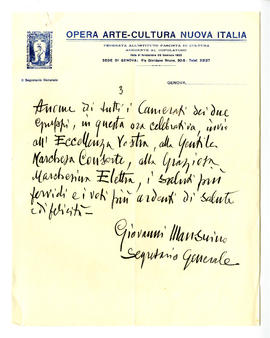 OPERA ARTE-CULTURA NUOVA ITALIA
FEDERATA ALL'ISTITUTO FASCISTA DI CULTURA
ADERENTE AL DOPOLAVORO
SEDE DI GENOVA: Via Giordano Bruno,
Il Segretario Generale
GENOVA,
3
A nome di tutti i Camerati dei due
gruppi, in questa ora celebrativa, invio
all' Eccellenza Vostra, alla Gentile
Marchesa Consorte, alla Graziosa
Marchesina Elettra, i saluti più
fervidi e i voti più ardenti di salute
e di felicità -
Giovanni
Segretario Generale